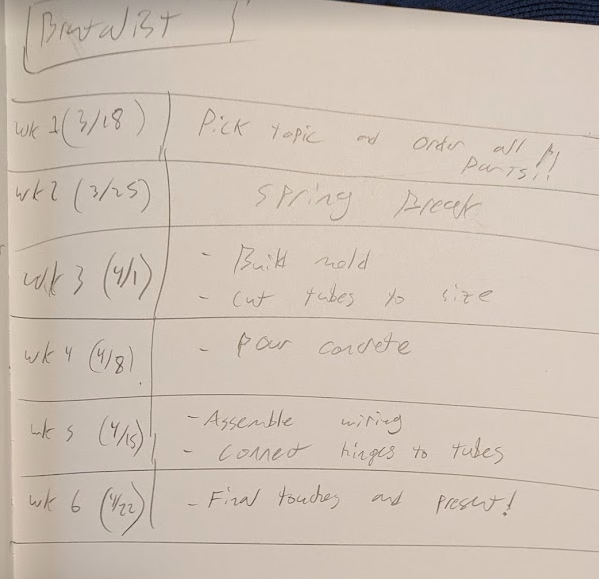 Brutalist
wk 1 (3/18) Pick topic and order all
parts!!
wk 2 (3/25) Spring Break
wk 3 (4/1) - Build mold
- cut tubes to size
wk 4 (4/8) - pour concrete
wk 5 (4/15) - Assemble wiring
- connect hinges to tubes
wk 6 (4/22) - Final touches and present!